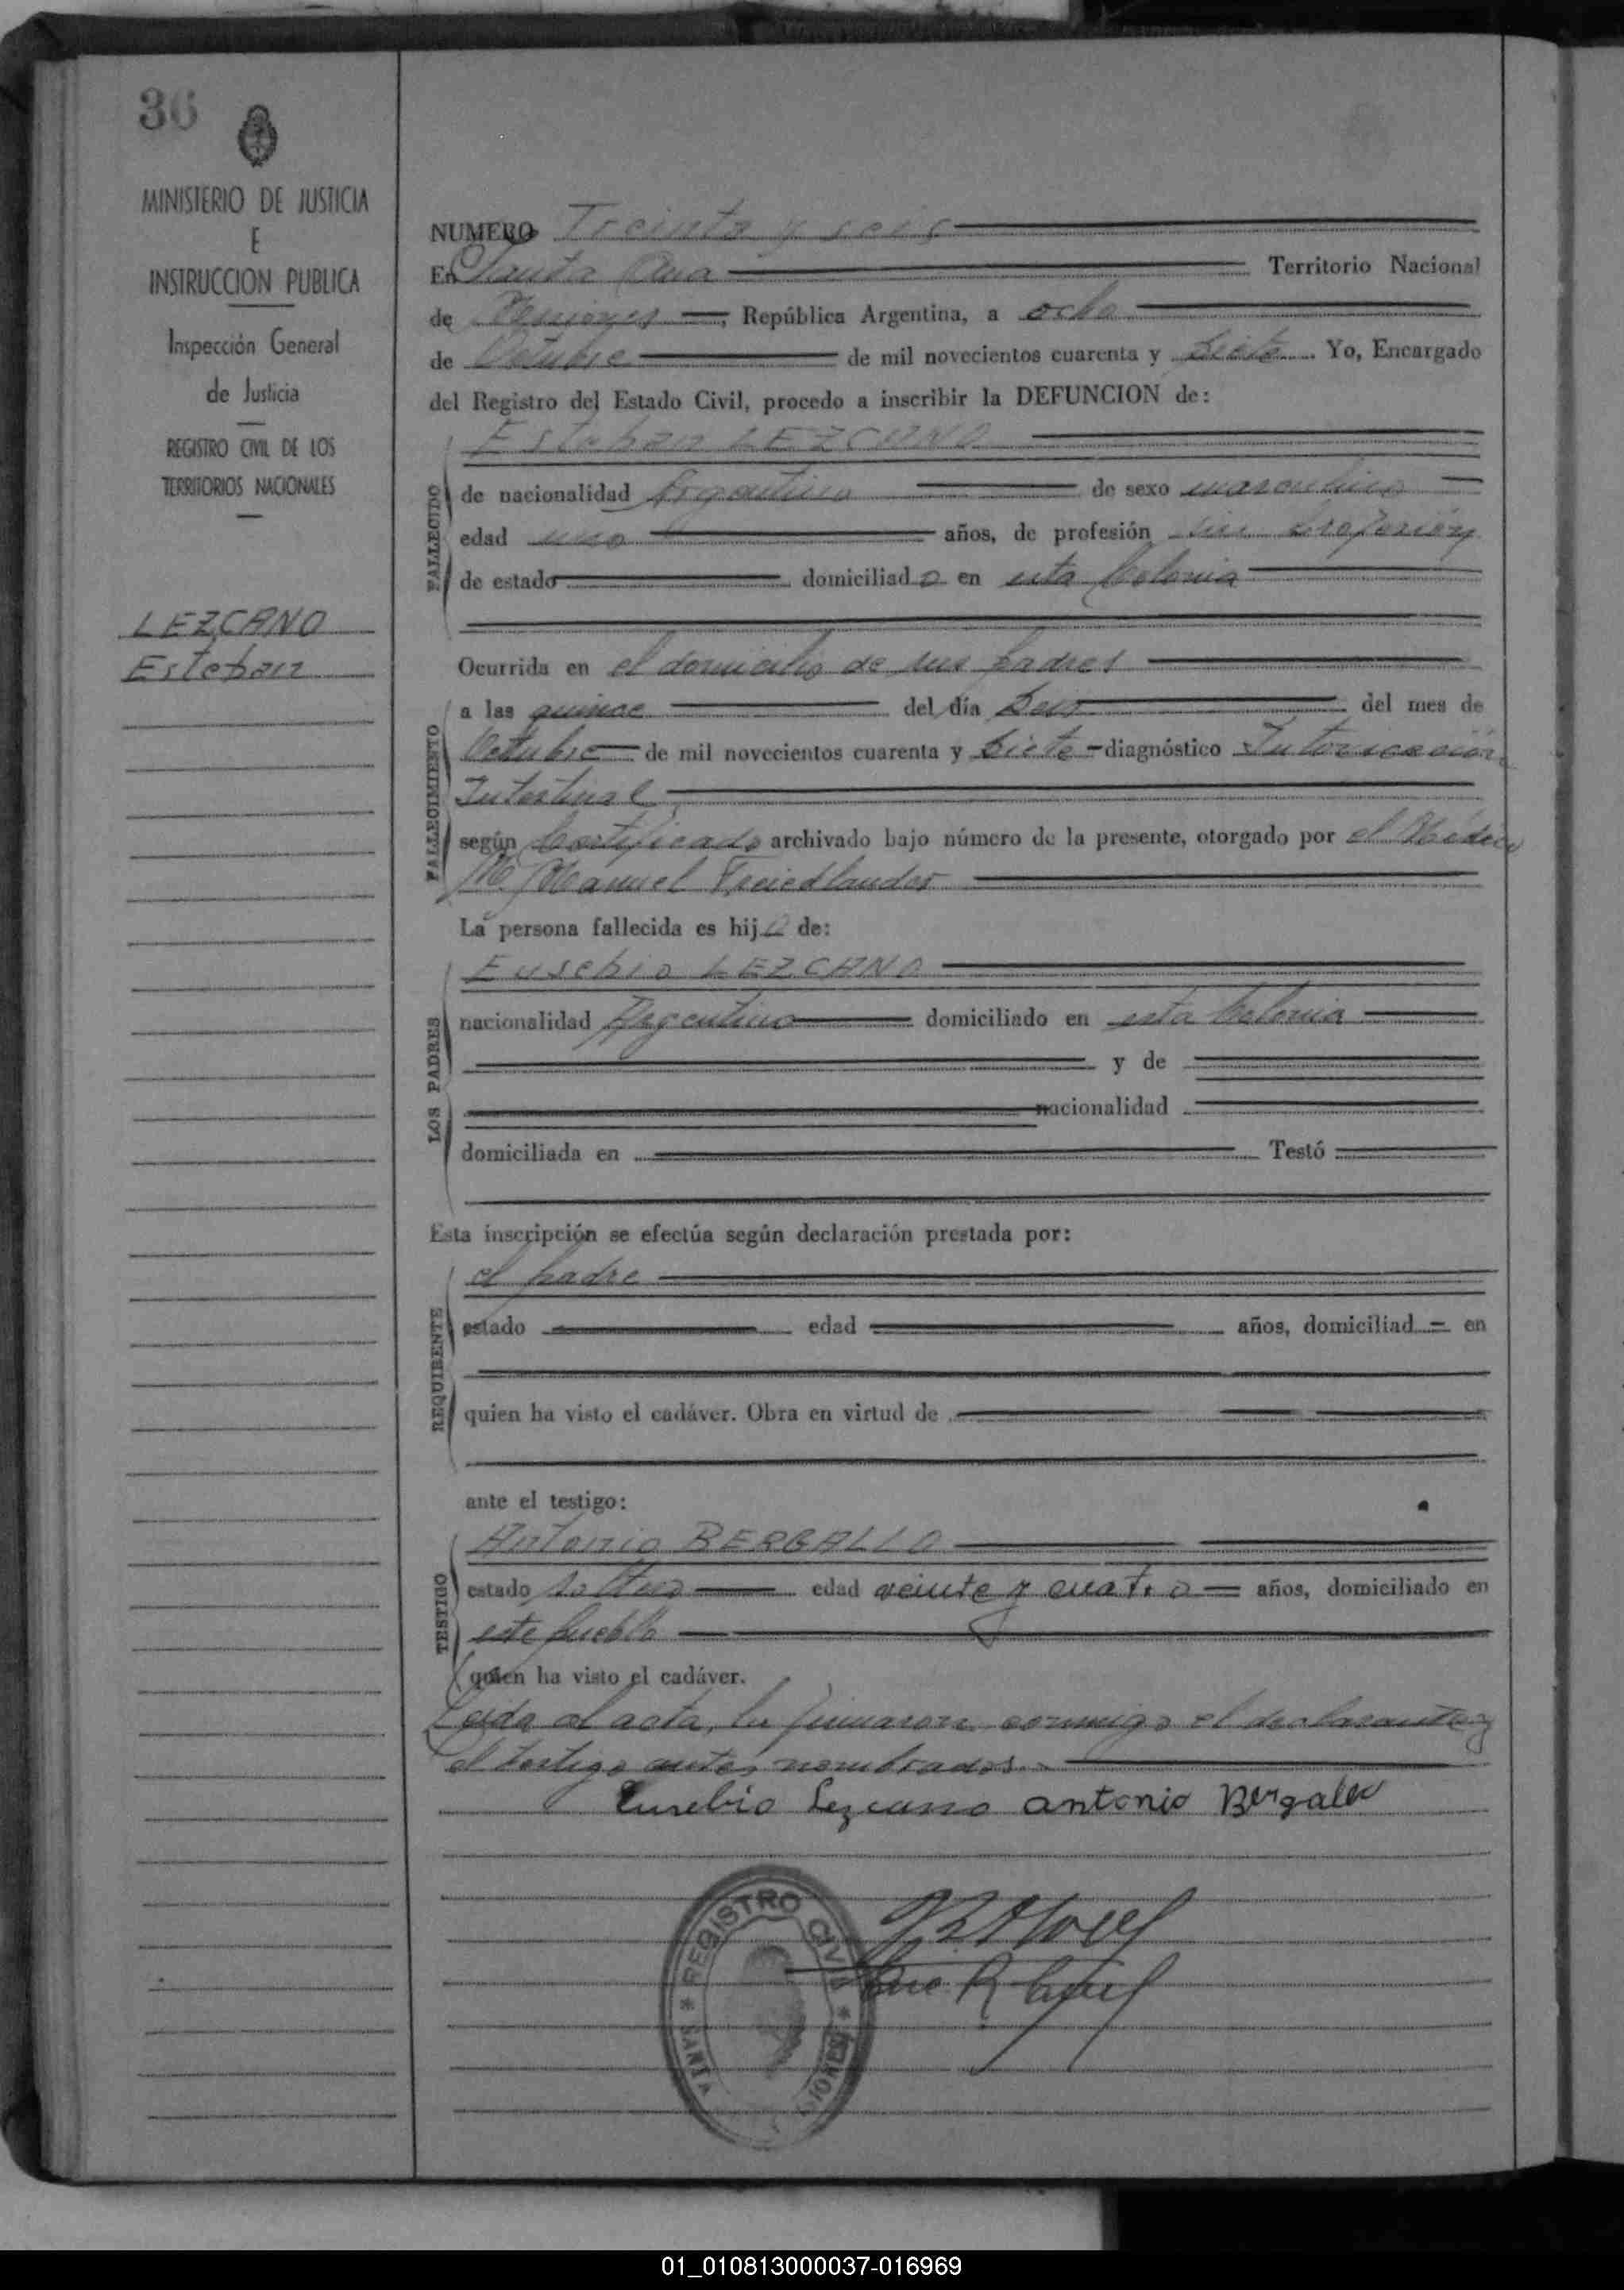 36
MINISTERIO DE JUSTICIA
E
INSTRUCCION PUBLICA
Inspección General
de Justicia
REGISTRO CIVIL DE LOS
TERRITORIOS NACIONALES
LEZCANO
Esteban
NUMERO Treinta y seis
En Santa Ana Territorio Nacional
de Misiones, República Argentina, a ocho
de Octubre de mil novecientos cuarenta y siete. Yo, Encargado
del Registro del Estado Civil, procedo a inscribir la DEFUNCION de:
FALLECIDO
Esteban LEZCANO
de nacionalidad Argentina de sexo masculino
edad uno años, de profesión sin profesión
de estado domiciliado en esta Colonia
Ocurrida en el domicilio de sus padres
FALLECIMIENTO
a las quince del día seis del mes de
Octubre de mil novecientos cuarenta y siete - diagnóstico Intoxicación
Intestinal
según Certificado archivado bajo número de la presente, otorgado por el Médico
Manuel Friedlander
La persona fallecida es hijo de:
LOS PADRES
Eusebio LEZCANO
nacionalidad Argentino domiciliado en esta Colonia
y de
nacionalidad
domiciliada en Testó
Esta inscripción se efectúa según declaración prestada por:
REQUIRENTE
el padre
estado edad años, domiciliad en
quien ha visto el cadáver. Obra en virtud de
ante el testigo:
TESTIGO
Antonio BERGALLO
estado soltero edad veinte y cuatro años, domiciliado en
este pueblo
quien ha visto el cadáver.
Leida el acta, la firmaron conmigo el declarante y
el testigo antes nombrados.
Eusebio Lezcano antonio Bergalo
REGISTRO CIVIL * SANTA * MISIONES
01_010813000037-016969